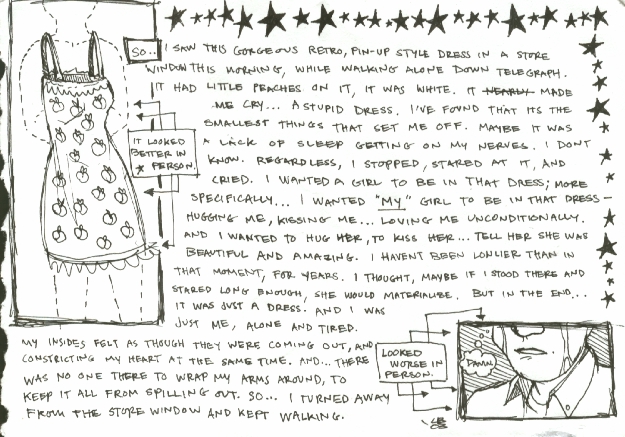 SO... I SAW THIS GORGEOUS RETRO, PIN-UP STYLE DRESS IN A STORE
WINDOW THIS MORNING, WHILE WALKING ALONE DOWN TELEGRAPH.
IT HAD LITTLE PEACHES ON IT, IT WAS WHITE. IT NEARLY MADE
ME CRY... A STUPID DRESS. I'VE FOUND THAT ITS THE
SMALLEST THINGS THAT SET ME OFF. MAYBE IT WAS
A LACK OF SLEEP GETTING ON MY NERVES. I DONT
KNOW. REGARDLESS, I STOPPED, STARED AT IT, AND
CRIED. I WANTED A GIRL TO BE IN THAT DRESS; MORE
SPECIFICALLY... I WANTED "MY" GIRL TO BE IN THAT DRESS—
HUGGING ME, KISSING ME... LOVING ME UNCONDITIONALLY.
AND I WANTED TO HUG HER, TO KISS HER... TELL HER SHE WAS
BEAUTIFUL AND AMAZING. I HAVENT BEEN LONLIER THAN IN
THAT MOMENT, FOR YEARS. I THOUGHT, MAYBE IF I STOOD THERE AND
STARED LONG ENOUGH, SHE WOULD MATERIALIZE. BUT IN THE END...
IT WAS JUST A DRESS. AND I WAS
JUST ME, ALONE AND TIRED.
MY INSIDES FELT AS THOUGH THEY WERE COMING OUT, AND
CONSTRICTING MY HEART AT THE SAME TIME. AND... THERE
WAS NO ONE THERE TO WRAP MY ARMS AROUND, TO
KEEP IT ALL FROM SPILLING OUT. SO... I TURNED AWAY
FROM THE STORE WINDOW AND KEPT WALKING.
IT LOOKED
BETTER IN
PERSON.
LOOKED
WORSE IN
PERSON.
DAMN.